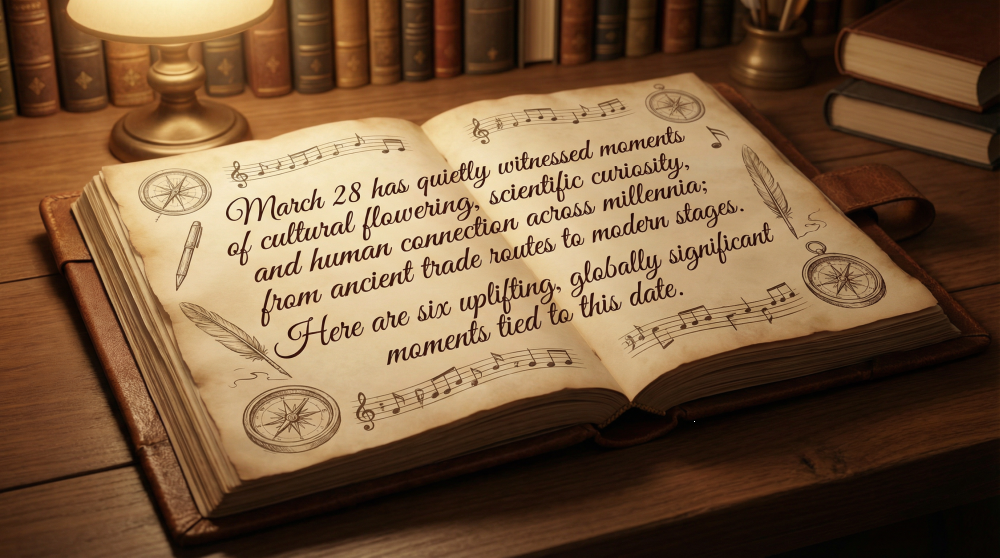 March 28 has quietly witnessed moments
of cultural flowering, scientific curiosity,
and human connection across millennia;
from ancient trade routes to modern stages.
Here are six uplifting, globally significant
moments tied to this date.